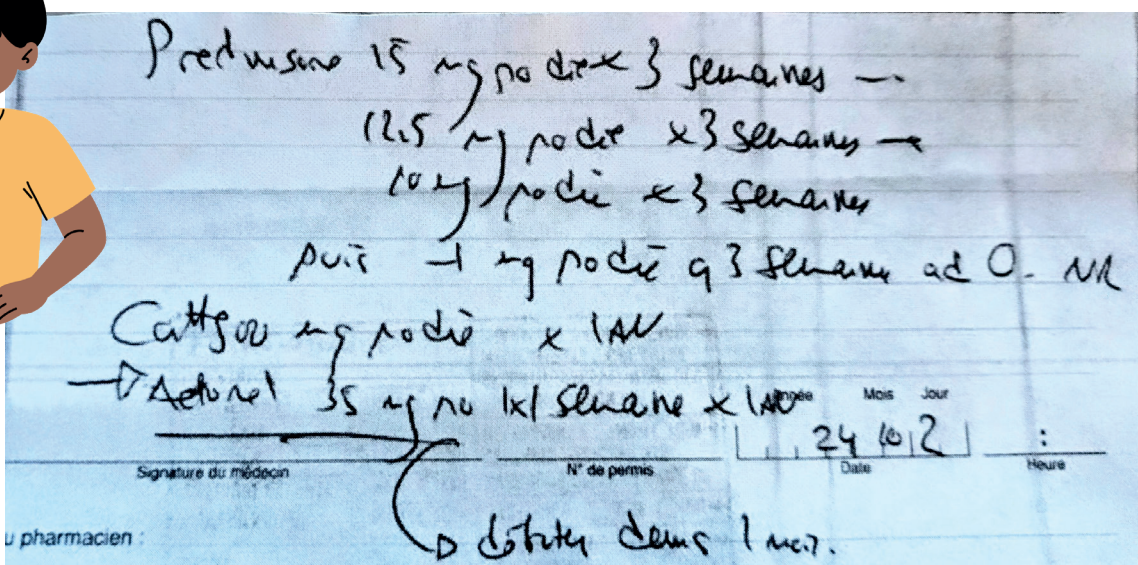 Prednisone 15 mg po die x 3 semaines →
12.5 mg po die x 3 semaines →
10 mg po die x 3 semaines
puis ↓ 1 mg po die q 3 semaines ad 0. NR
Ca++ 500 mg po die x 1 AN
→ Actonel 35 mg po 1x/semaine x 1 AN
Année Mois Jour
24 10 2 :
Signature du médecin N° de permis Date Heure
u pharmacien : débuter dans 1 mois.